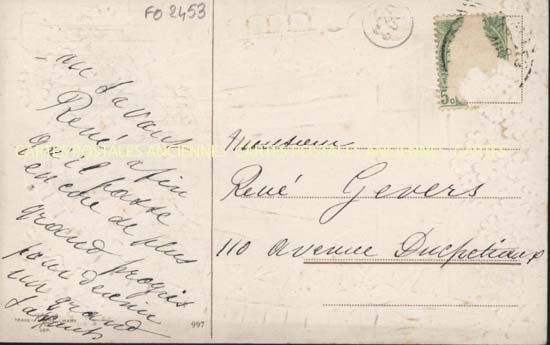 FO 2453
5c
au savant
René afin
qu'il fasse
encore de plus
grands progrès
pour devenir
un grand
savant
997
CARTES POSTALES ANCIENNES CARTES POSTALES ANCIENNES CARTES
Monsieur
René Gevers
110 Avenue Ducpétiaux